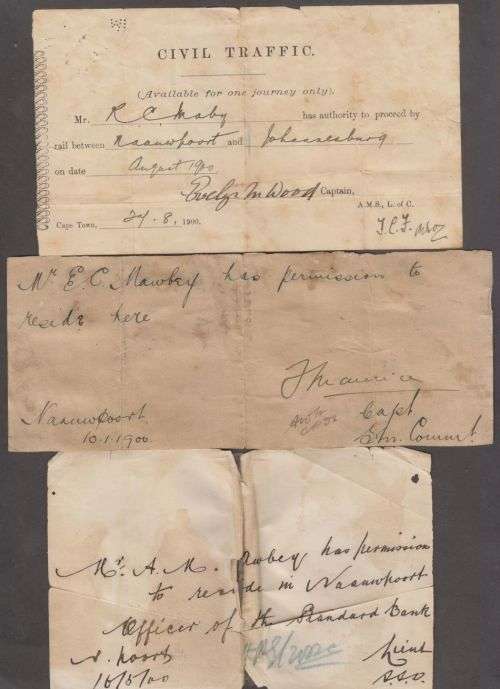 CIVIL TRAFFIC.
(Available for one journey only).
Mr. has authority to proceed by
rail between Naauwpoort and Johannesburg
on date August 1900
Evelyn M Wood Captain,
A.M.S., L. of C.
Cape Town, 24 - 8, 1900.
Mr E. C. Mawbey has permission to
reside here
Naauwpoort
10.1.1900
Capt
Stn. Commt
Mr. A. M. has permission
to reside in Naauwpoort
Officer of the Standard Bank
N. poort Lieut
S.S.O.